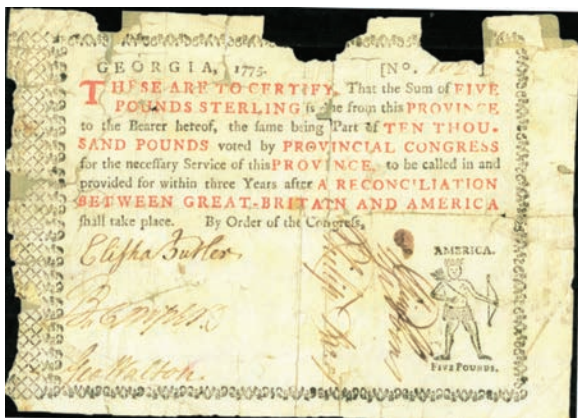 GEORGIA, 1775. [No.
THESE ARE TO CERTIFY, That the Sum of FIVE
POUNDS STERLING is due from this PROVINCE
to the Bearer hereof, the same being Part of TEN THOU-
SAND POUNDS voted by PROVINCIAL CONGRESS
for the necessary Service of this PROVINCE, to be called in and
provided for within three Years after A RECONCILIATION
BETWEEN GREAT-BRITAIN AND AMERICA
shall take place. By Order of the Congress,
Elisha Butler
Geo Walton
AMERICA.
FIVE POUNDS.